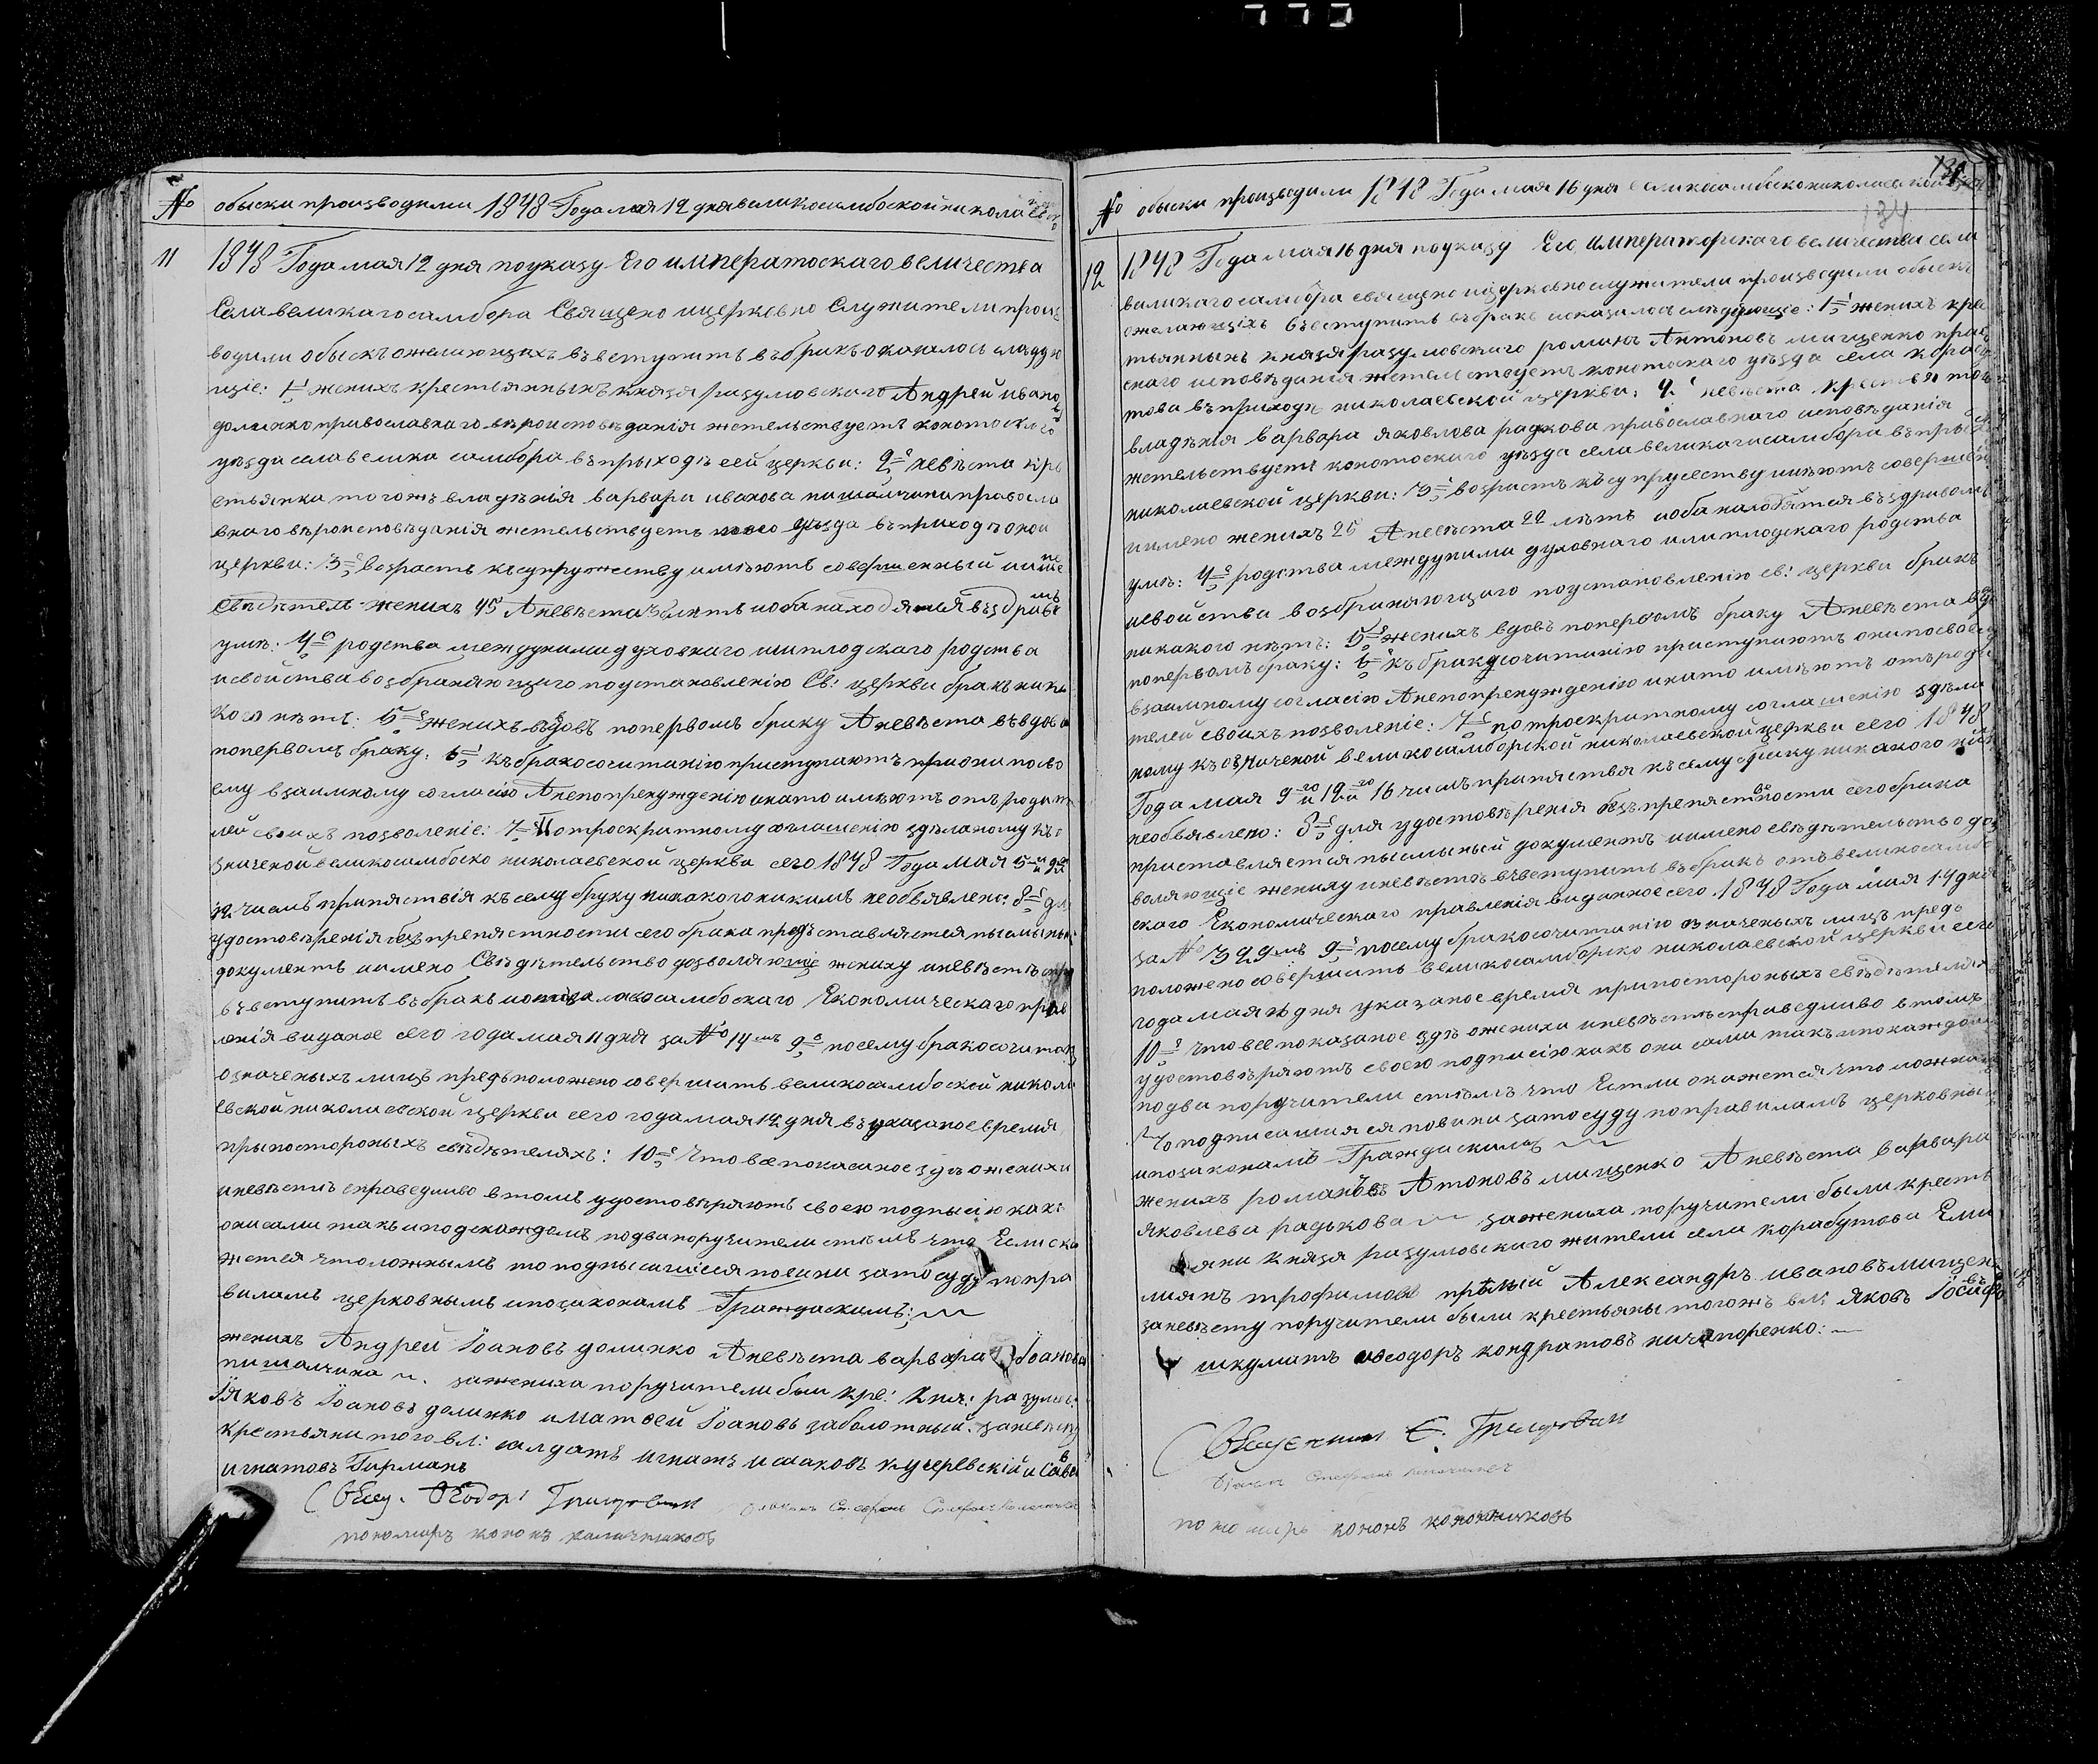 № обыски производили 1848 Года мая 12 дня великосамбоской никола
11
1848 Года мая 12 дня по указу Его императоскаго величества
Села великаго самбора Священо ицерковно Служители произ
водили обыскъ ожелающихъ въвступить въбракъ оказалось следую
щіе: 1е женихъ крестьянинъ князя разумовскаго Андрей ивано
долинко православнаго вѣроисповѣданія жетельствуетъ конотоскаго
уѣзда села велика самбора въпрыходѣ сей церкви: 2е невѣста кре
стьянка тогожъ владѣнія варвара иванова православ
внаго вѣроисповѣданія жетельствуетъ уѣзда въприходѣ оной
церкви: 3е возрасть къ супружеству имѣютъ совершенный
женихъ 45 Аневѣста лѣтъ иоба находятся въздравѣ
умѣ: 4е родства междунимидуховнаго иплодскаго родства
исвойства возбраняющаго поустановленію Св: церкви бракъ ника
кого нѣтъ: 5е женихъ вдовъ попервомъ браку Аневѣста въдова
попервомъ браку: 6е къбракосочитанію приступаютъ они посво
ему взаимному согласію Анепопренужденію инато имѣютъ отъ родит
лей своихъ позволеніе: 7е Потроскратному оглашенію здѣланому къ
значеной великосамбоско николаевской церкви сего 1848 Года мая 5 и 9
12 числъ припятствія къ сему браку никакого никимъ необъявлено: 8е дл
удостовѣренія безъпрепятности сего брака предъставляется
документъ иимено Свѣдѣтельство дозволяющіе жениху иневѣстѣ
въвступить въбракъ самбоскаго Економическаго прав
ленія виданое сего года мая 11 дня за № 14мъ 9е посему бракосочитан
означеныхъ лицъ предъположено совершить великосамбоской никола
евской николаевской церкви сего года мая 12 дня въ указаное время
прыпостороныхъ свѣдѣтеляхъ: 10е Что все показаное здѣ ожених и
иневѣстѣ справедливо втомъ удостовѣряютъ своею подписію какъ
они сами такъ и подкаждомъ подва поручители стѣмъ что Если ока
жется что ложнымъ то подписавшіеся повини зато суду попра
виламъ церковнымъ ипозаконамъ Гражданскимъ:
женихъ Андрей Іоановъ долинко Аневѣста варвара Іоанова
зажениха поручители были кре: Кня: разумов:
Іяковъ Іоановъ долинко иматвей Іоановъ заболотный. заневѣсту
крестьяни того вл: салдатъ игнатъ исаковъ кучеревскій и Сава
игнатовъ Гирманъ
Свящ. Ѳеодоръ Григорович
пономаръ кононъ
№ обыски производили 1848 Года мая 16 дня великосамбоско николаевской
134
12
1848 Года мая 16 дня по указу Его императорскаго величества села
великаго самбора священо ицерковнослужители производили обыскъ
ожелающіхъ въвступить въбракъ иоказалось слѣдующіе: 1е женихъ кре
стьянинъ князя разумовскаго романъ Антоновъ мищенко прав
снаго исповѣданія жетельствуетъ конотоскаго уѣзда села корабу
това въприходѣ николаевской церкви: 2е невѣста крестья того
владѣнія варвара яковлева радкова православнаго исповѣданія
жетельствуетъ конотоскаго уѣзда села великагосамбора въпри
николаевской церкви: 3е возрастъ къ супружеству имѣютъ совершен
иимено женихъ 25 Аневѣста 22 лѣтъ иоба находятся въздравомъ
умѣ: 4е родства междуними духовнаго или плодскаго родства
исвойства возбраняющаго подстановленію св: церкви бракъ
никакого нѣтъ: 5е женихъ вдовъ попервомъ браку Аневѣста вдо
попервомъ браку: 6е къ бракусочитанію приступаютъ они посвоему
взаимному согласію Анепопренужденію инато имѣютъ отъ роди
телей своихъ позволеніе: 7е потроскратному соглашенію здѣла
ному къ означеной великосамборской николаевской церкви сего 1848
Года мая 9го и 12го и 16 числъ припятствя къ сему браку никакого
необъявлено: 8е для удостовѣренія безъпрепятности сего брака
приставляется документъ иимено свѣдѣтельство до
воляющіе жениху иневѣстѣ въвступить въбракъ отъ великосамбо
скаго Економическаго правленія виданное сего 1848 Года мая 14 дня
за № 329мъ 9е посему бракосочитанію означеныхъ лицъ предъ
положено совершить великосамборско николаевской церкви сего
года мая 16 дня указаное время припостороныхъ свѣдѣтеляхъ
10е что все показаное здѣ ожениху иневѣстѣ справедливо втомъ
удостовѣряютъ своею подписію какъ они сами такъ и покаждомъ
подва поручители стѣмъ что Естли окажется что ложнымъ
то подписавшіяся повини зато суду поправиламъ церковным
ипозаконамъ Гражданскимъ
женихъ романъ Атоновъ мищенко Аневѣста варвара
яковлева радькова зажениха поручители были кресть
яни князя разумовскаго жители села корабутова Еми
лиянъ трофимовъ Александръ ивановъ мищен
заневѣсту поручители были крестьяны тогожъ вл: яковъ Іосифо
шкуматъ иѳеодоръ кондратовъ ничипоренко:
Священникъ Ѳ. Григорович
пономаръ кононъ